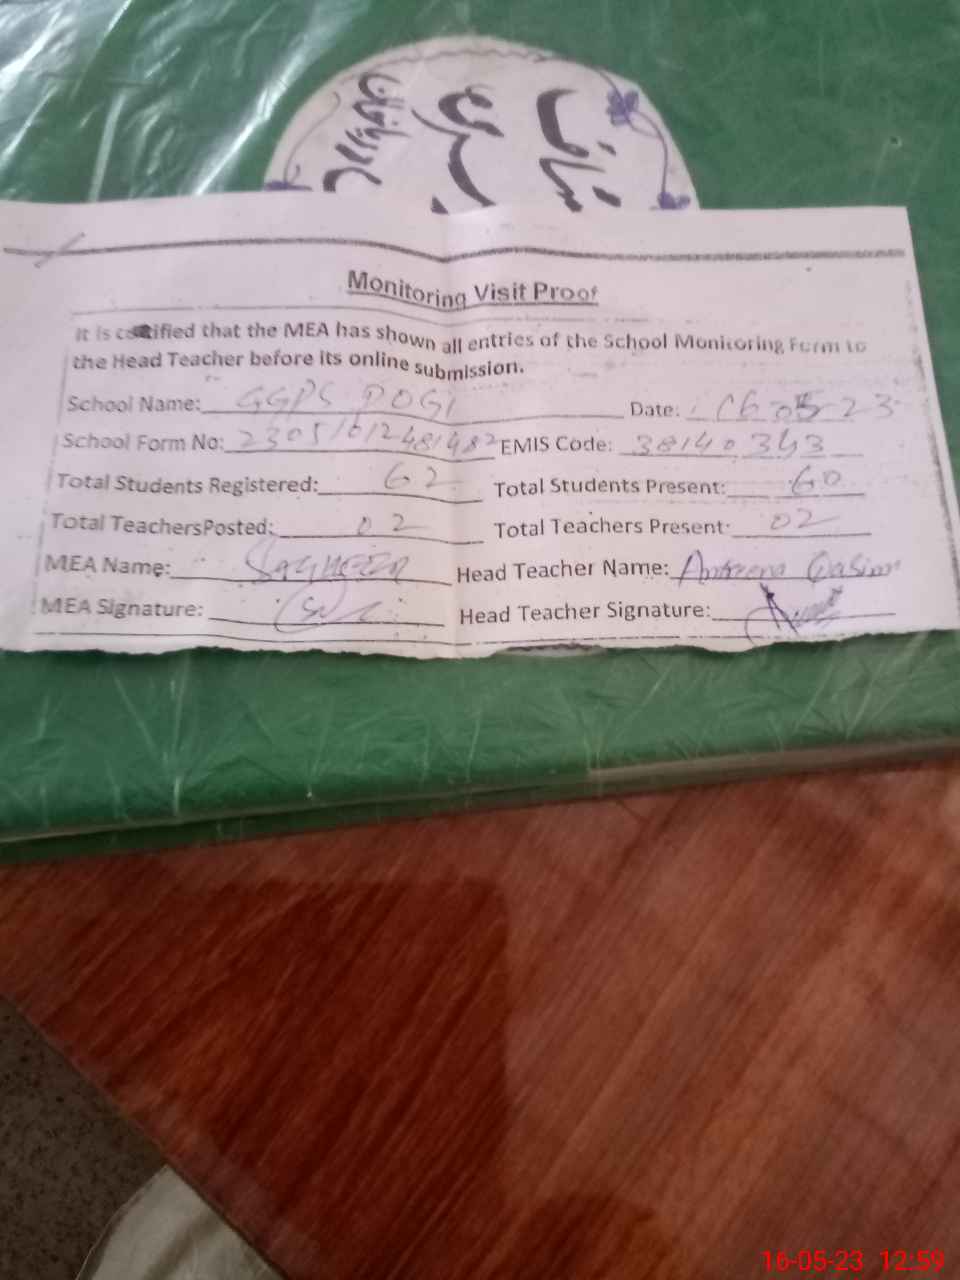 متفرق
سرکاری
Monitoring Visit Proof
It is certified that the MEA has shown all entries of the School Monitoring Form to
the Head Teacher before its online submission.
School Name: GGPS DOGI Date: 16-05-23
School Form No: 23051612481482 EMIS Code: 38140343
Total Students Registered: 62 Total Students Present: 60
Total TeachersPosted: 02 Total Teachers Present: 02
MEA Name: Sagheer Head Teacher Name: Qasim
MEA Signature: Head Teacher Signature:
16-05-23 12:59